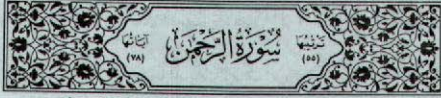 ترتيبها (٥٥) سُورَةُ الرَّحْمٰن آياتها (٧٨)